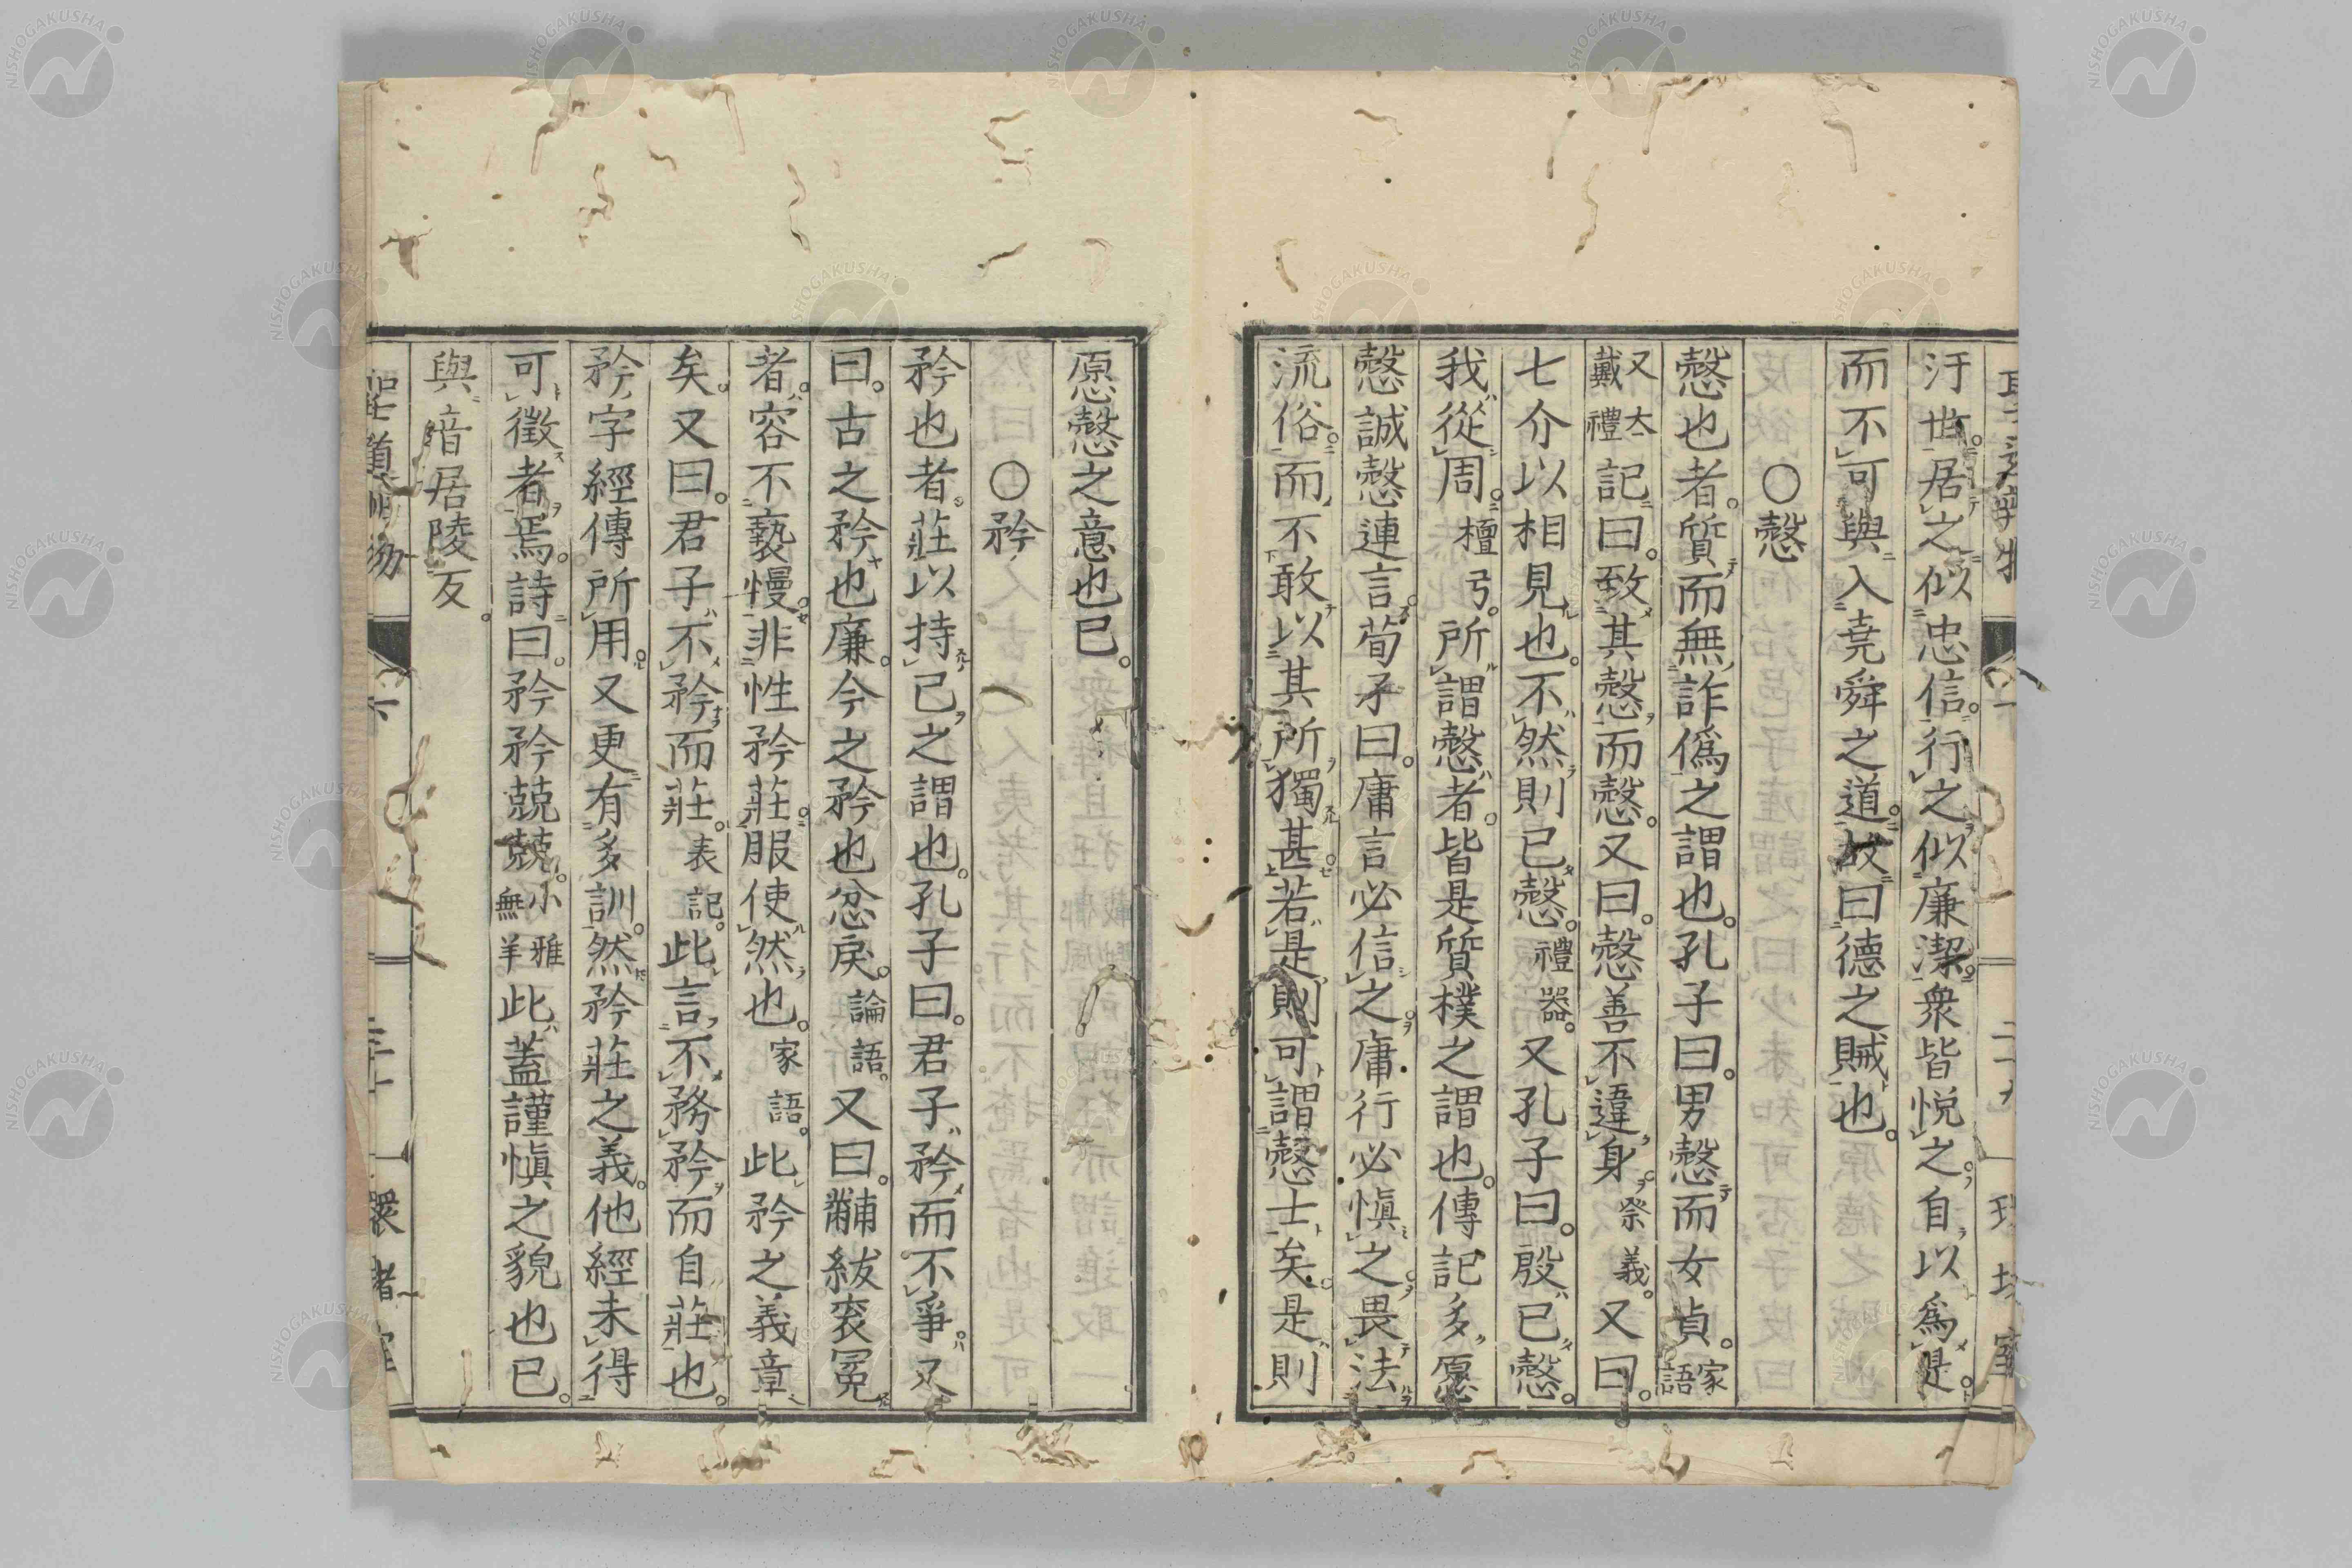 汙世。居之似忠信。行之似廉潔。衆皆悦之。自以爲是。
而不可與入尭舜之道。故曰德之賊也。
○愨
愨也者。質而無詐僞之謂也。孔子曰。男愨而女貞。家語
又大戴禮記曰。致其愨而愨。又曰。愨善不違身。祭義。又曰。
七介以相見也。不然則已愨。禮器。又孔子曰。殷已愨。
我從周。檀弓。所謂愨者。皆是質樸之謂也。傳記多愿
愨誠愨連言。荀子曰。庸言必信之。庸行必愼之。畏法
流俗。而不敢以其所獨甚。若是則可謂愨士矣。是則
愿愨之意也已。
○矜
矜也者。莊以持己之謂也。孔子曰。君子矜而不爭。又
曰。古之矜也廉。今之矜也忿戾。論語。又曰。黼紱衮冕
者。容不褻慢。非性矜莊。服使然也。家語。此矜之義章
矣。又曰。君子不矜而莊。表記。此言不務矜而自莊也。
矜字經傳所用。又更有多訓。然矜莊之義。他經未得
可徵者焉。詩曰。矜矜兢兢。小雅無羊此蓋謹愼之貌也已。
與音居陵反。